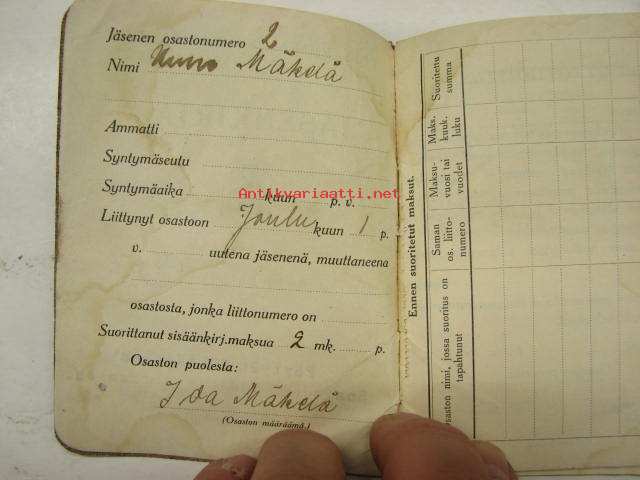 Jäsenen osastonumero 2
Nimi Mäkelä
Ammatti
Syntymäseutu
Syntymäaika kuun p. v.
Liittynyt osastoon Joulu kuun 1 p.
v. uutena jäsenenä, muuttaneena
osastosta, jonka liittonumero on
Suorittanut sisäänkirj.maksua 2 mk. p.
Osaston puolesta:
Ida Mäkelä
(Osaston määräämä.)
Antikvariaatti.net
Ennen suoritetut maksut.
Osaston nimi, jossa suoritus on
tapahtunut
Saman
os. liitto-
numero
Maksu-
vuosi tai
vuodet
Maks.
kuuk.
luku
Suoritettu
summa